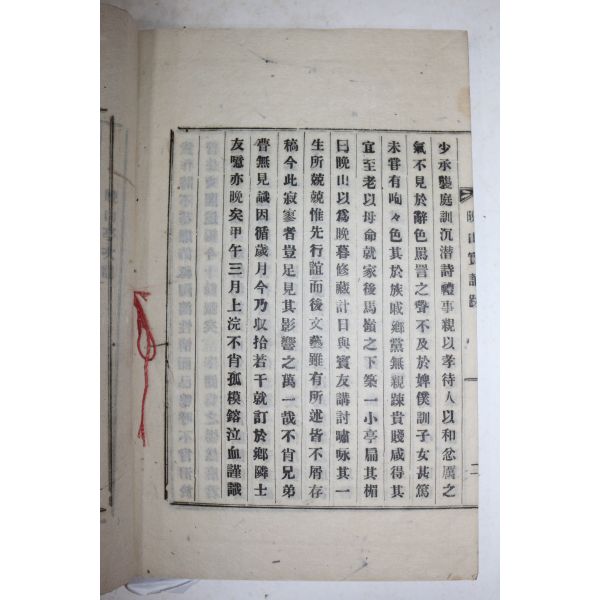 少承襲庭訓沉潜詩禮事親以孝待人以和忿厲之
氣不見於辭色罵詈之聲不及於婢僕訓子女甚篤
未甞有呴々色其於族戚鄉黨無親踈貴賤咸得其
宜至老以母命就家後馬嶺之下築一小亭扁其楣
曰晩山以爲晩暮修藏計日與賓友講討嘯咏其一
生所兢兢惟先行誼而後文藝雖有所述皆不屑存
稿今此寂寥者豈足見其影響之萬一哉不肖兄弟
瞢無見識因循歲月今乃収拾若干就訂於鄉隣士
友噫亦晩矣甲午三月上浣不肖孤模鎔泣血謹識
晩山實記跋
二